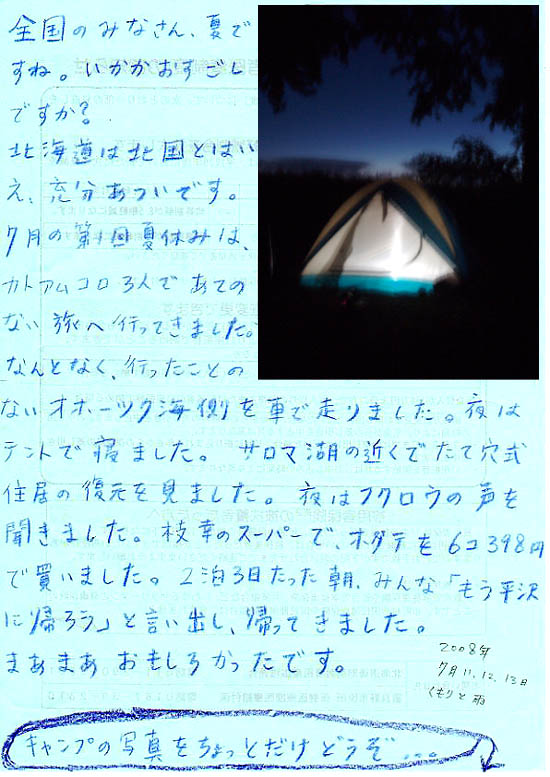 全国のみなさん、夏で
すね。いかかおすごし
ですか?
北海道は北国とはい
え、充分あついです。
7月の第1回夏休みは、
カトアムコロ3人であての
ない旅へ行ってきました。
なんとなく、行ったことの
ないオホーツク海側を車で走りました。夜は
テントで寝ました。サロマ湖の近くでたて穴式
住居の復元を見ました。夜はフクロウの声を
聞きました。枝幸のスーパーで、ホタテを6コ398円
で買いました。2泊3日たった朝、みんな「もう平沢
に帰ろう」と言い出し、帰ってきました。
まあまあおもしろかったです。
2008年
7月11、12、13日
くもりと雨
キャンプの写真をちょっとだけどうぞ....